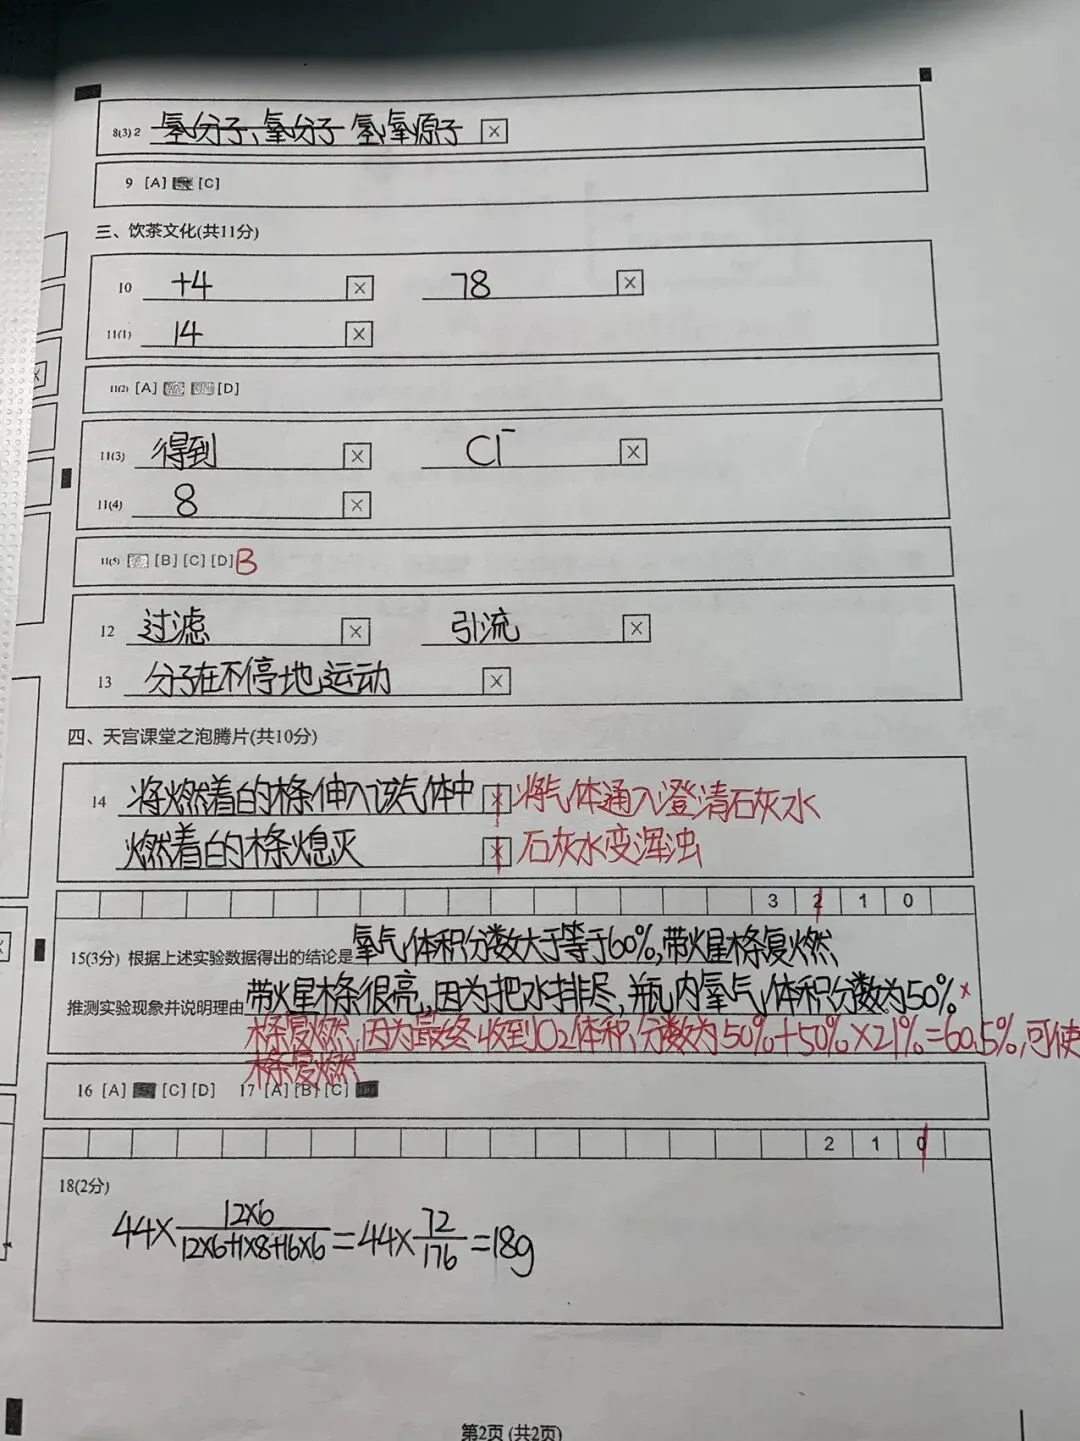 8(3) 2 氢分子、氧分子 氢、氧原子 ×
9 [A] [C]
三、饮茶文化(共11分)
10 +4 × 78 ×
11(1) 14 ×
11(2) [A] [D]
11(3) 得到 × Cl⁻ ×
11(4) 8 ×
11(5) [B] [C] [D] B
12 过滤 × 引流 ×
13 分子在不停地运动 ×
四、天宫课堂之泡腾片(共10分)
14 将燃着的木条伸入该气体中 × 将气体通入澄清石灰水
燃着的木条熄灭 × 石灰水变浑浊
3 2 1 0
15(3分) 根据上述实验数据得出的结论是氧气体积分数大于等于60%,带火星木条复燃
推测实验现象并说明理由带火星木条很亮,因为把水排尽,瓶内氧气体积分数为50% ×
木条复燃,因为最终收到O2体积分数为50%+50%×21%=60.5%,可使
木条复燃
16 [A] [C] [D] 17 [A] [B] [C]
2 1 0
18(2分)
44×12×6/12×6+1×8+16×6=44×72/176=18g
第2页 (共2页)